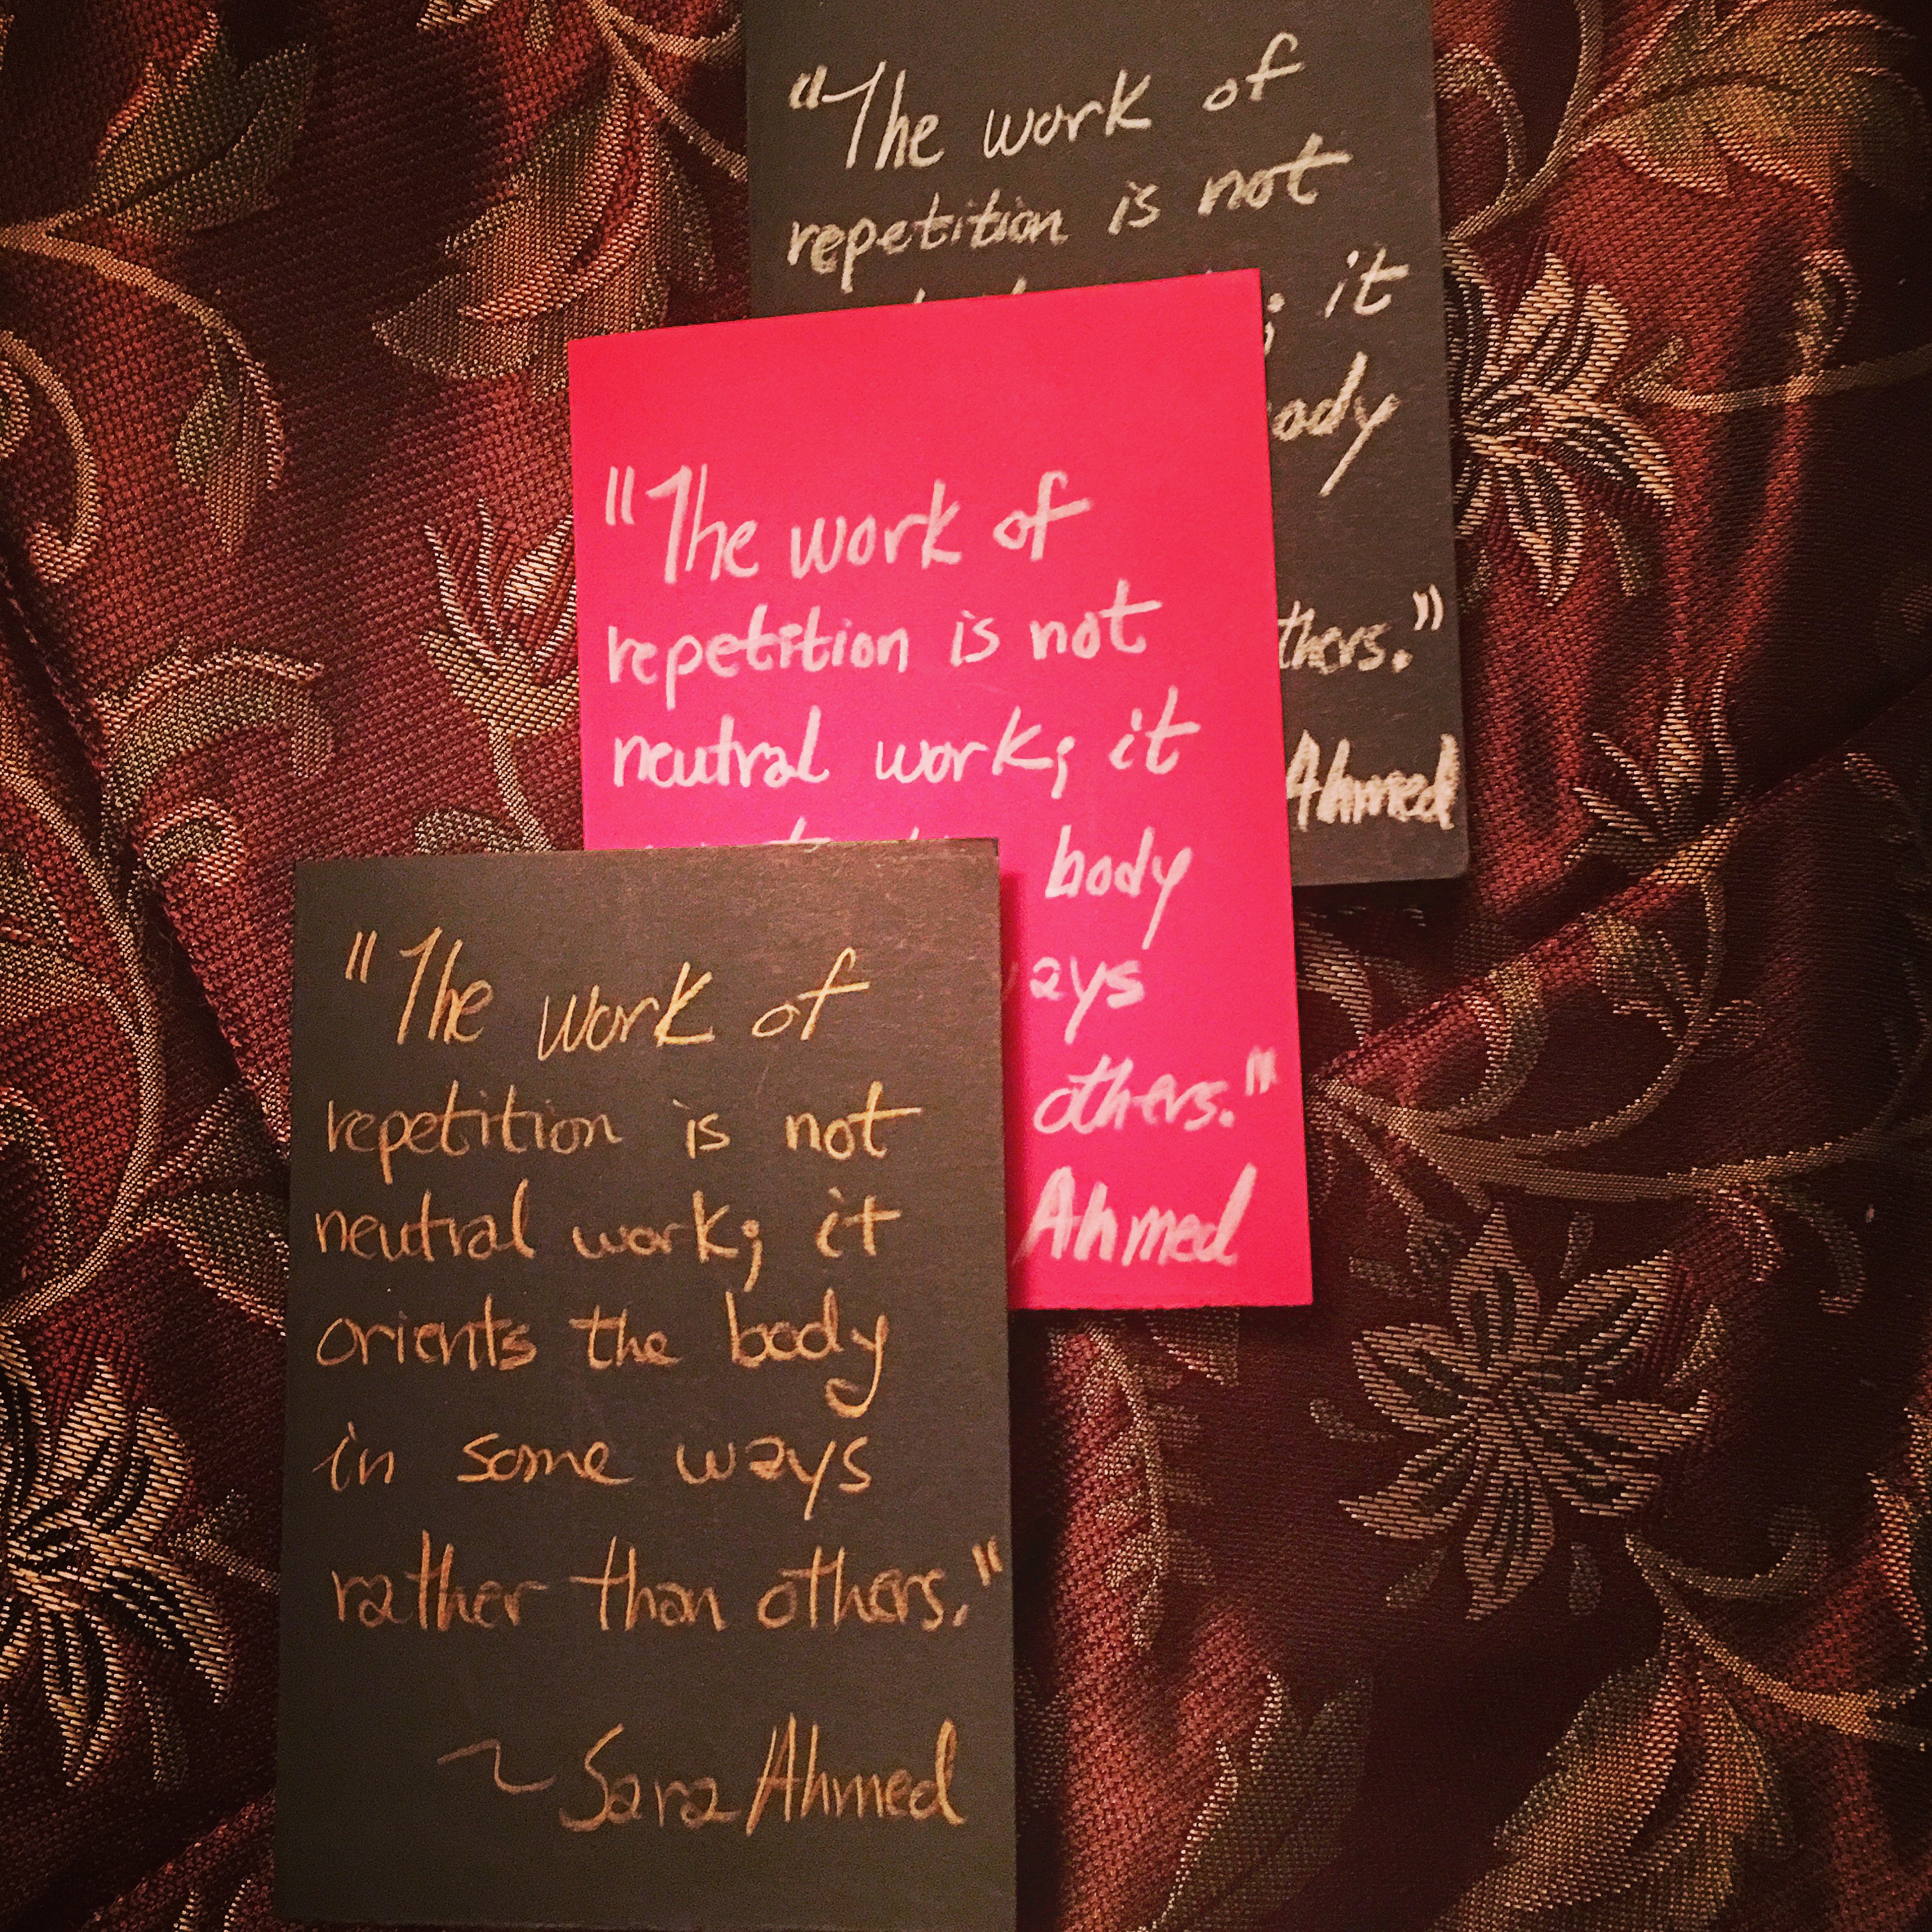 "The work of
repetition is not
; it
ody
thers."
Ahmed
"The work of
repetition is not
neutral work; it
body
ways
others."
Ahmed
"The work of
repetition is not
neutral work; it
orients the body
in some ways
rather than others."
~ Sara Ahmed